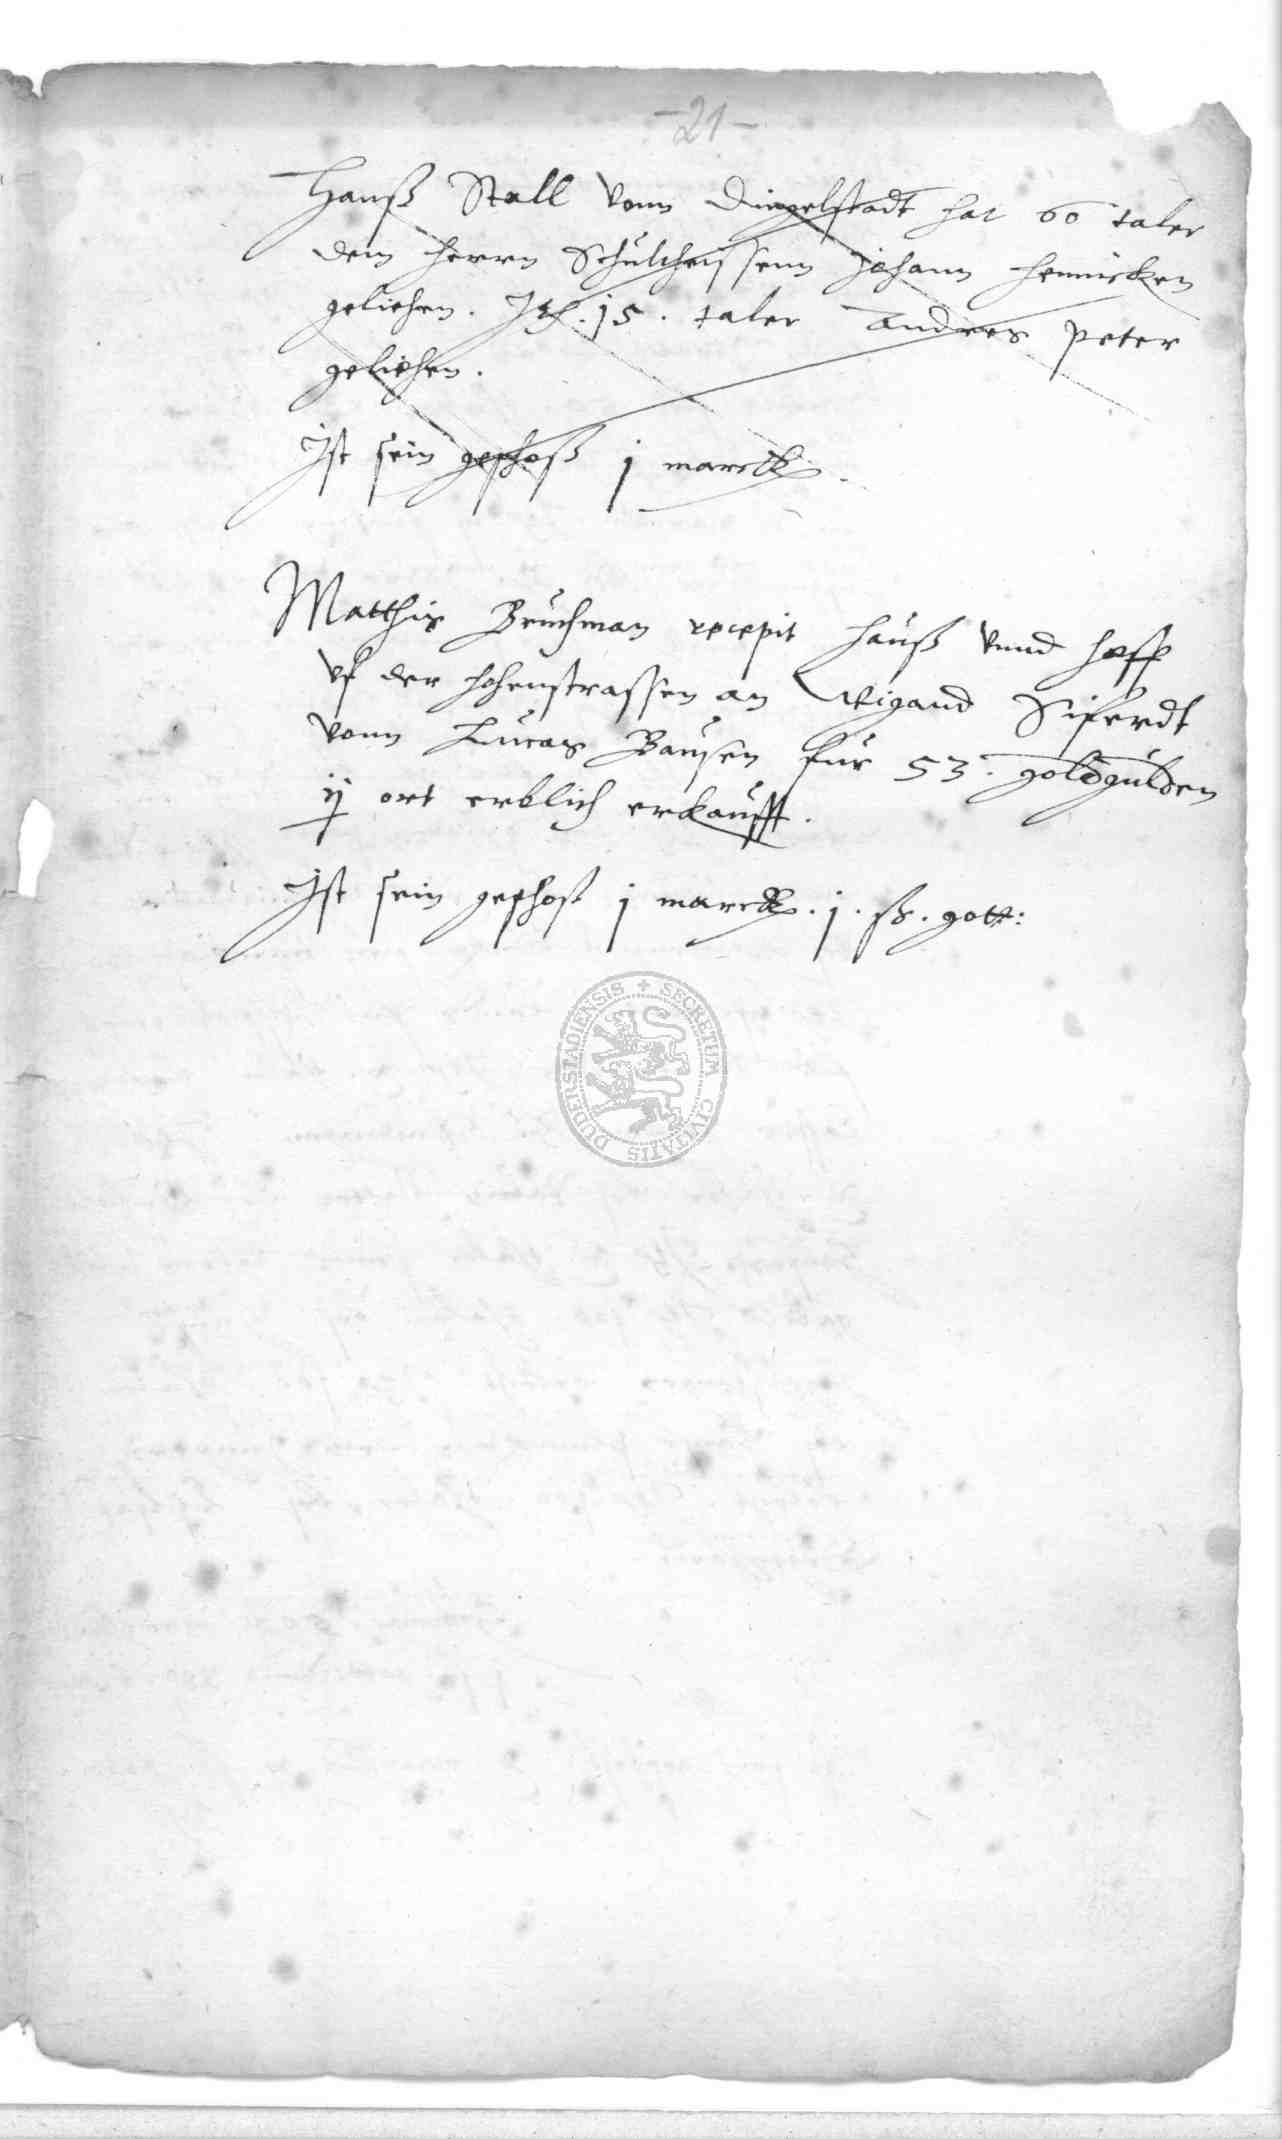 -21-
Hanß Stall vonn Dingelstadt hat 60 taler
dem herrn Schultheissenn Johann Hennicken
geliehen. It. 15. taler Andres Peter
geliehen.
Ist sein geschoß j marck.
Matthis Bruchman recepit hauß vnnd hoff
vf der hohenstrassen an Wigand Siferdt
vonn Lucas Bausen fur 53. goltgulden
ij ort erblich erkaufft.
Ist sein geschoß j marck. j. ß. gott:
SECRETUM CIVITATIS DUDERSTADIENSIS